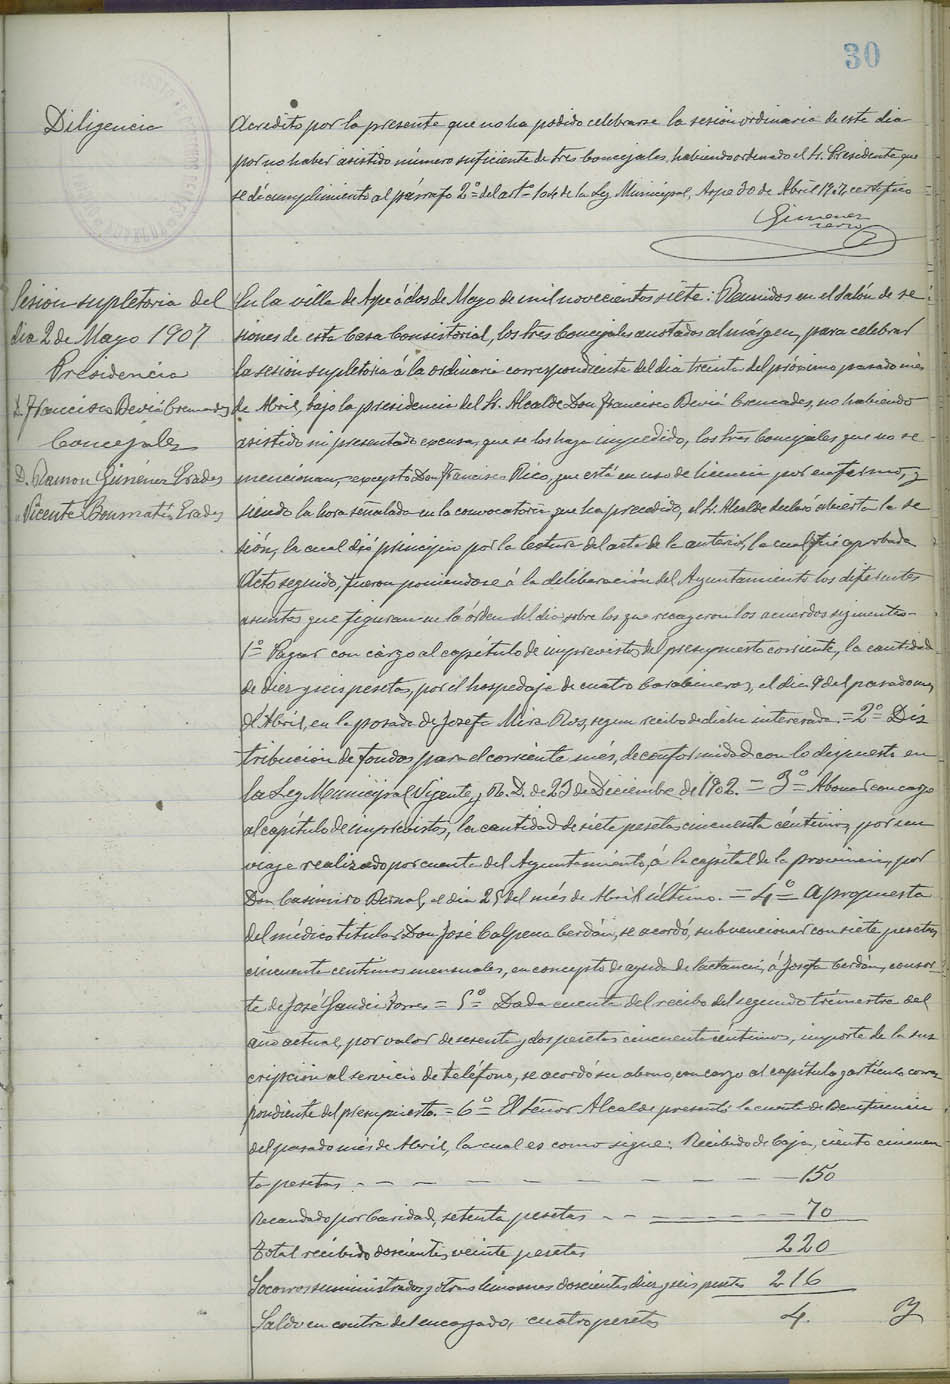 30
Diligencia
Acredito por la presente que no ha podido celebrarse la sesión ordinaria de este dia
por no haber asistido número suficiente de tres Concejales, habiendo ordenado el Sr. Presidente que
se dé cumplimiento al párrafo 2º del artº 104 de la Ley Municipal, Aspe 30 de Abril 1907, certifico
Gimenez
Sesion supletoria del
dia 2 de Mayo 1907
Presidencia
D. Francisco Beviá Cremades
Concejales
D. Ramon Giménez Prades
" Vicente Bonmatí Prades
En la villa de Aspe á dos de Mayo de mil novecientos siete: Reunidos en el Salón de se
siones de esta Casa Consistorial, los tres Concejales anotados al márgen, para celebrar
la sesión supletoria á la ordinaria correspondiente del dia treinta del próximo pasado més
de Abril, bajo la presidencia del Sr. Alcalde Don Francisco Beviá Cremades, no habiendo
asistido ni presentado excusas, que se los haya impedido, los tres Concejales que no se
mencionan, excepto Don Francisco Rico, que está en uso de licencia por enfermo, y
siendo la hora señalada en la convocatoria que ha precedido, el Sr. Alcalde declaró abierta la se
sión, la cual dió principio por la lectura del acta de la anterior, la cual fué aprobada
Acto seguido, fueron poniendose á la deliberación del Ayuntamiento los diferentes
asuntos que figuran en la órden del dia sobre los que recayeron los acuerdos siguientes-
1º= Pagar con cargo al capítulo de imprevistos del presupuesto corriente, la cantidad
de diez y seis pesetas, por el hospedaje de cuatro Carabineros, el dia 9 del pasado mes
de Abril, en la posada de Josefa Mira Ros, segun recibo de dicha interesada. = 2º= Dis
tribucion de fondos para el corriente més, de conformidad con lo dispuesto en
la Ley Municipal vigente y R. D. de 23 de Diciembre de 1902. = 3º= Abonar con cargo
al capítulo de imprevistos, la cantidad de siete pesetas cincuenta céntimos, por un
viaje realizado por cuenta del Ayuntamiento, á la capital de la provincia, por
Don Casimiro Bernal, el dia 25 del més de Abril último. = 4º= A propuesta
del médico titular Don José Calpena Cerdán, se acordó, subvencionar con siete pesetas
cincuenta centimos mensuales, en concepto de ayuda de lactancia, á Josefa Cerdán, consor
te de José Torres = 5º= Dada cuenta del recibo del segundo trimestre del
año actual, por valor de sesenta y dos pesetas cincuenta céntimos, importe de la sus
cripcion al servicio de teléfono, se acordó su abono, con cargo al capítulo y artículo corres
pondiente del presupuesto. = 6º= El Señor Alcalde presentó la cuenta de Beneficencia
del pasado més de Abril, la cual es como sigue: Recibido de Caja, ciento cincuen
ta pesetas - - - - - - - - - - 150
Recaudado por Caridad, setenta pesetas - - - - - - 70
Total recibido doscientas veinte pesetas 220
Socorros suministrados y otras limosnas doscientas diez y seis pesetas 216
Saldo en contra del encargado, cuatro pesetas 4. y